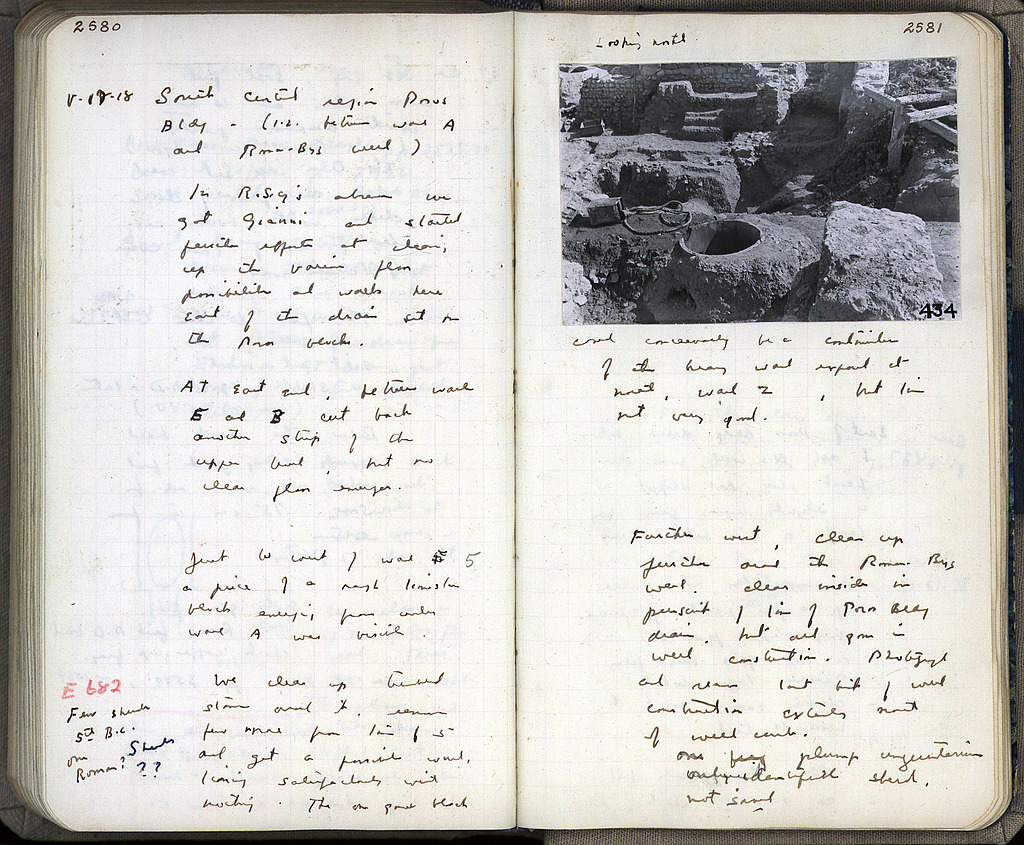 2580
V-17-18 South central region Poros
Bldg - (i.e. between wall A
and Rom-Byz well)
In R.S.Y.'s absence we
got Gianni and started
further efforts at clean,
up the various floor
possibilities and walls here
East of the drain set on
the Poros blocks.
At East end, between walls
E and B cut back
another strip of the
upper level, but no
clear floor emerges.
Just to west of wall 5
a piece of a rough limestone
block emerging from under
wall A was visible.
E 682
We clear up
stones around it, remove
few more from line of 5
and get a possible wall,
lining satisfactorily with
nothing. The one good block
Few sherds
5th B.C.
one
Roman?
Sherds
??
2581
Looking north
434
could conceivably be a continuation
of the heavy wall exposed at
north, wall Z, but line
not very good.
Further west, clean up
further around the Roman-Byz
well. Clear inside in
pursuit of line of Poros Bldg
drain, but all gone in
well construction. Photograph
and remove last bit of well
construction extends north
of well curb.
one plump unguentarium
unidentified sherd,
not saved